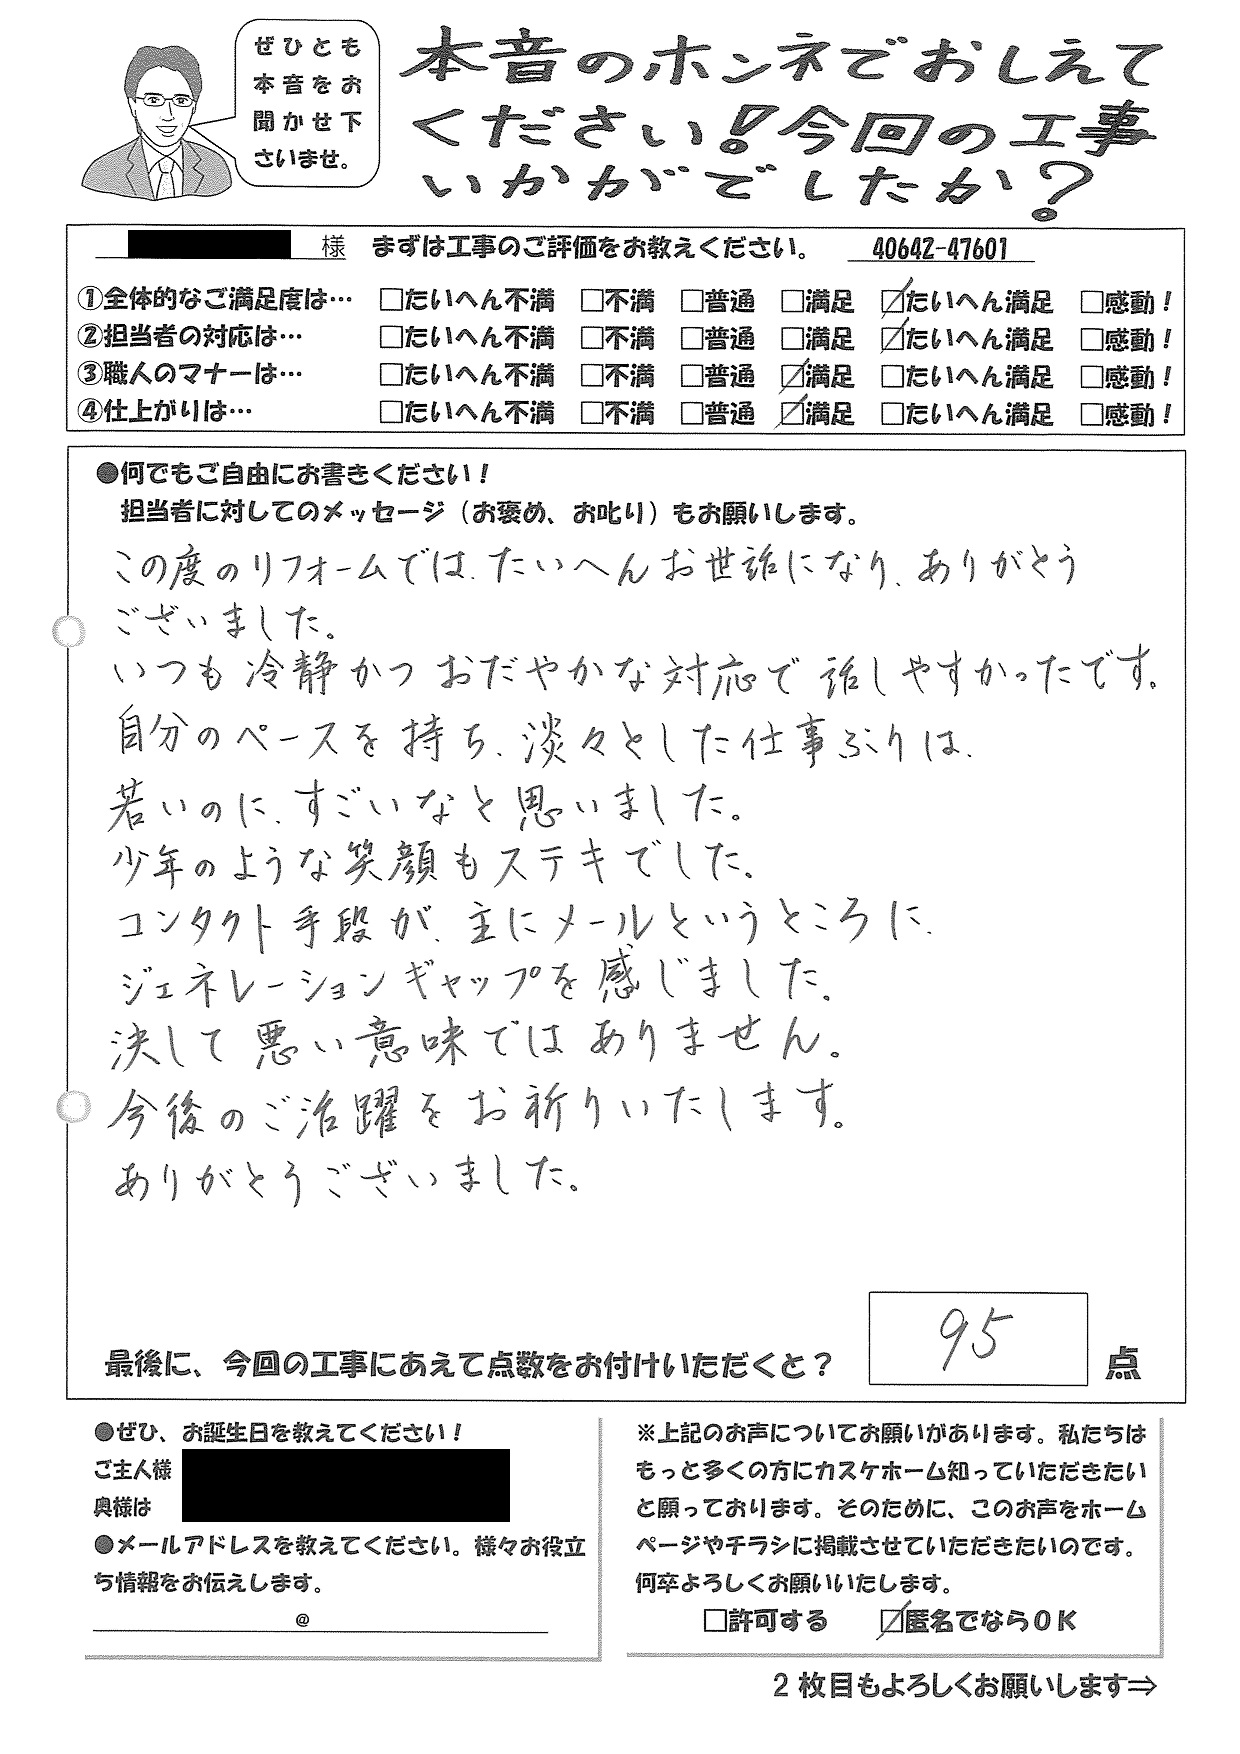 ぜひとも
本音をお
聞かせ下
さいませ。
本音のホンネでおしえて
ください!今回の工事
いかがでしたか?
様 まずは工事のご評価をお教えください。 40642-47601
①全体的なご満足度は… □たいへん不満 □不満 □普通 □満足 ☑たいへん満足 □感動!
②担当者の対応は… □たいへん不満 □不満 □普通 □満足 ☑たいへん満足 □感動!
③職人のマナーは… □たいへん不満 □不満 □普通 ☑満足 □たいへん満足 □感動!
④仕上がりは… □たいへん不満 □不満 □普通 ☑満足 □たいへん満足 □感動!
●何でもご自由にお書きください!
担当者に対してのメッセージ(お褒め、お叱り)もお願いします。
この度のリフォームでは、たいへんお世話になり、ありがとう
ございました。
いつも冷静かつおだやかな対応で話しやすかったです。
自分のペースを持ち、淡々とした仕事ぶりは、
若いのに、すごいなと思いました。
少年のような笑顔もステキでした。
コンタクト手段が、主にメールというところに、
ジェネレーションギャップを感じました。
決して悪い意味ではありません。
今後のご活躍をお祈りいたします。
ありがとうございました。
最後に、今回の工事にあえて点数をお付けいただくと? 95 点
●ぜひ、お誕生日を教えてください!
ご主人様
奥様は
●メールアドレスを教えてください。様々お役立
ち情報をお伝えします。
@
※上記のお声についてお願いがあります。私たちは
もっと多くの方にカスケホーム知っていただきたい
と願っております。そのために、このお声をホーム
ページやチラシに掲載させていただきたいのです。
何卒よろしくお願いいたします。
□許可する ☑匿名でならOK
2枚目もよろしくお願いします⇒